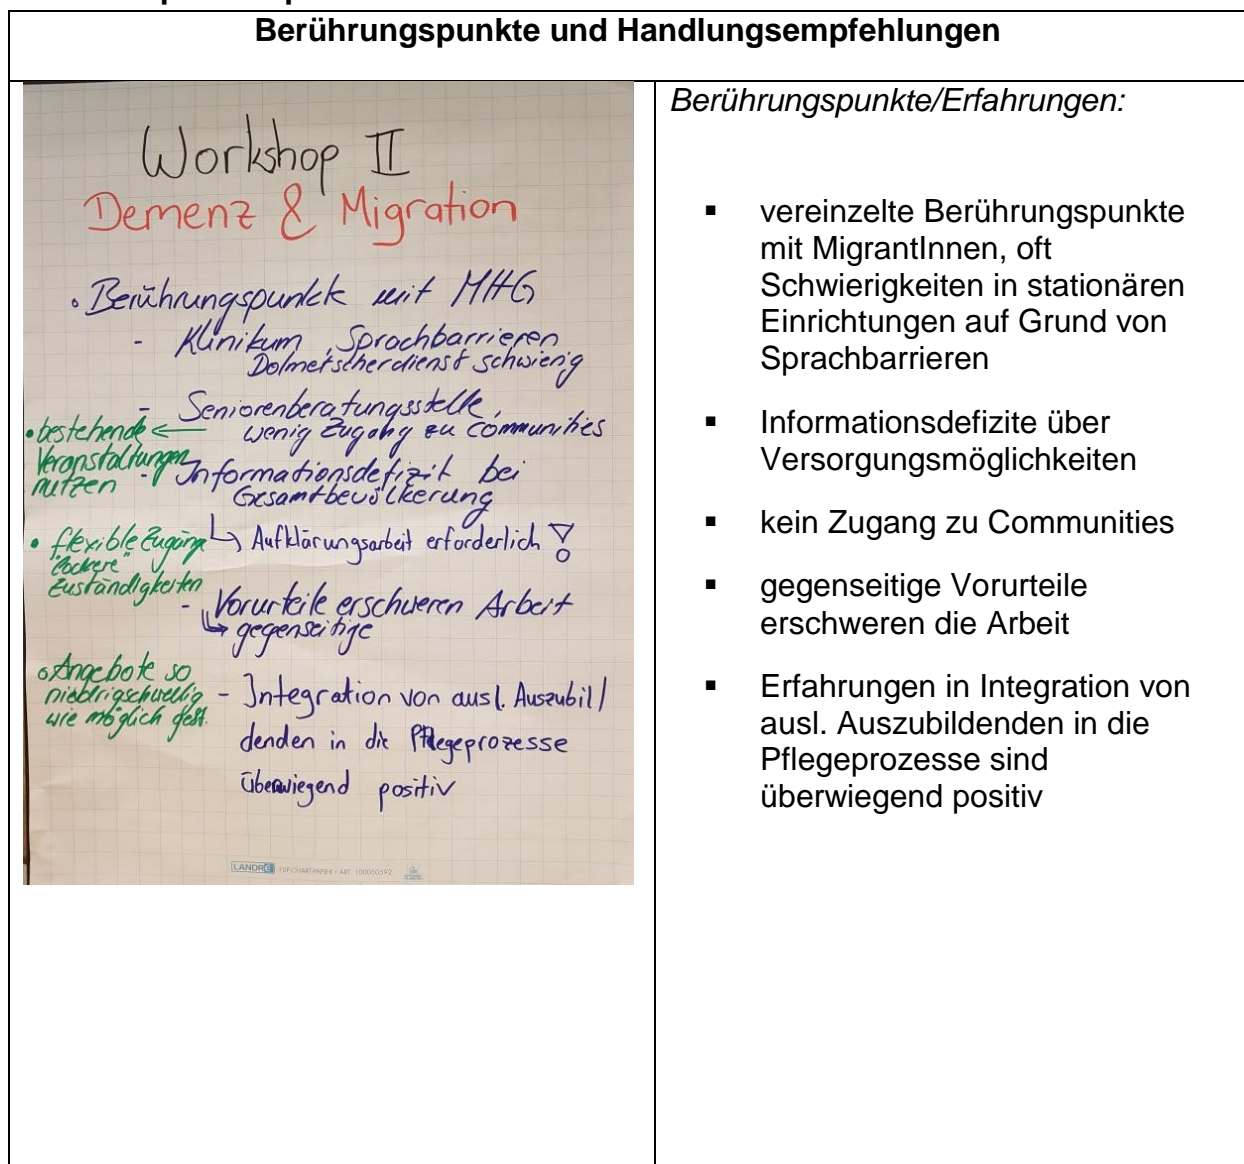 Berührungspunkte und Handlungsempfehlungen
Workshop II
Demenz & Migration
• Berührungspunkte mit MHG
- Klinikum, Sprachbarrieren
Dolmetscherdienst schwierig
- Seniorenberatungsstelle,
wenig Zugang zu Communities
• bestehende ←
Veranstaltungen
nutzen
- Informationsdefizit bei
Gesamtbevölkerung
↳ Aufklärungsarbeit erforderlich !
• flexible Zugänge
"lockere"
Zuständigkeiten
- Vorurteile erschweren Arbeit
↳ gegenseitige
• Angebote so
niedrigschwellig
wie möglich gest.
- Integration von ausl. Auszubil/
denden in die Pflegeprozesse
überwiegend positiv
LANDRÉ FLIPCHARTPAPIER • ART. 100050592
Berührungspunkte/Erfahrungen:
▪ vereinzelte Berührungspunkte
mit MigrantInnen, oft
Schwierigkeiten in stationären
Einrichtungen auf Grund von
Sprachbarrieren
▪ Informationsdefizite über
Versorgungsmöglichkeiten
▪ kein Zugang zu Communities
▪ gegenseitige Vorurteile
erschweren die Arbeit
▪ Erfahrungen in Integration von
ausl. Auszubildenden in die
Pflegeprozesse sind
überwiegend positiv